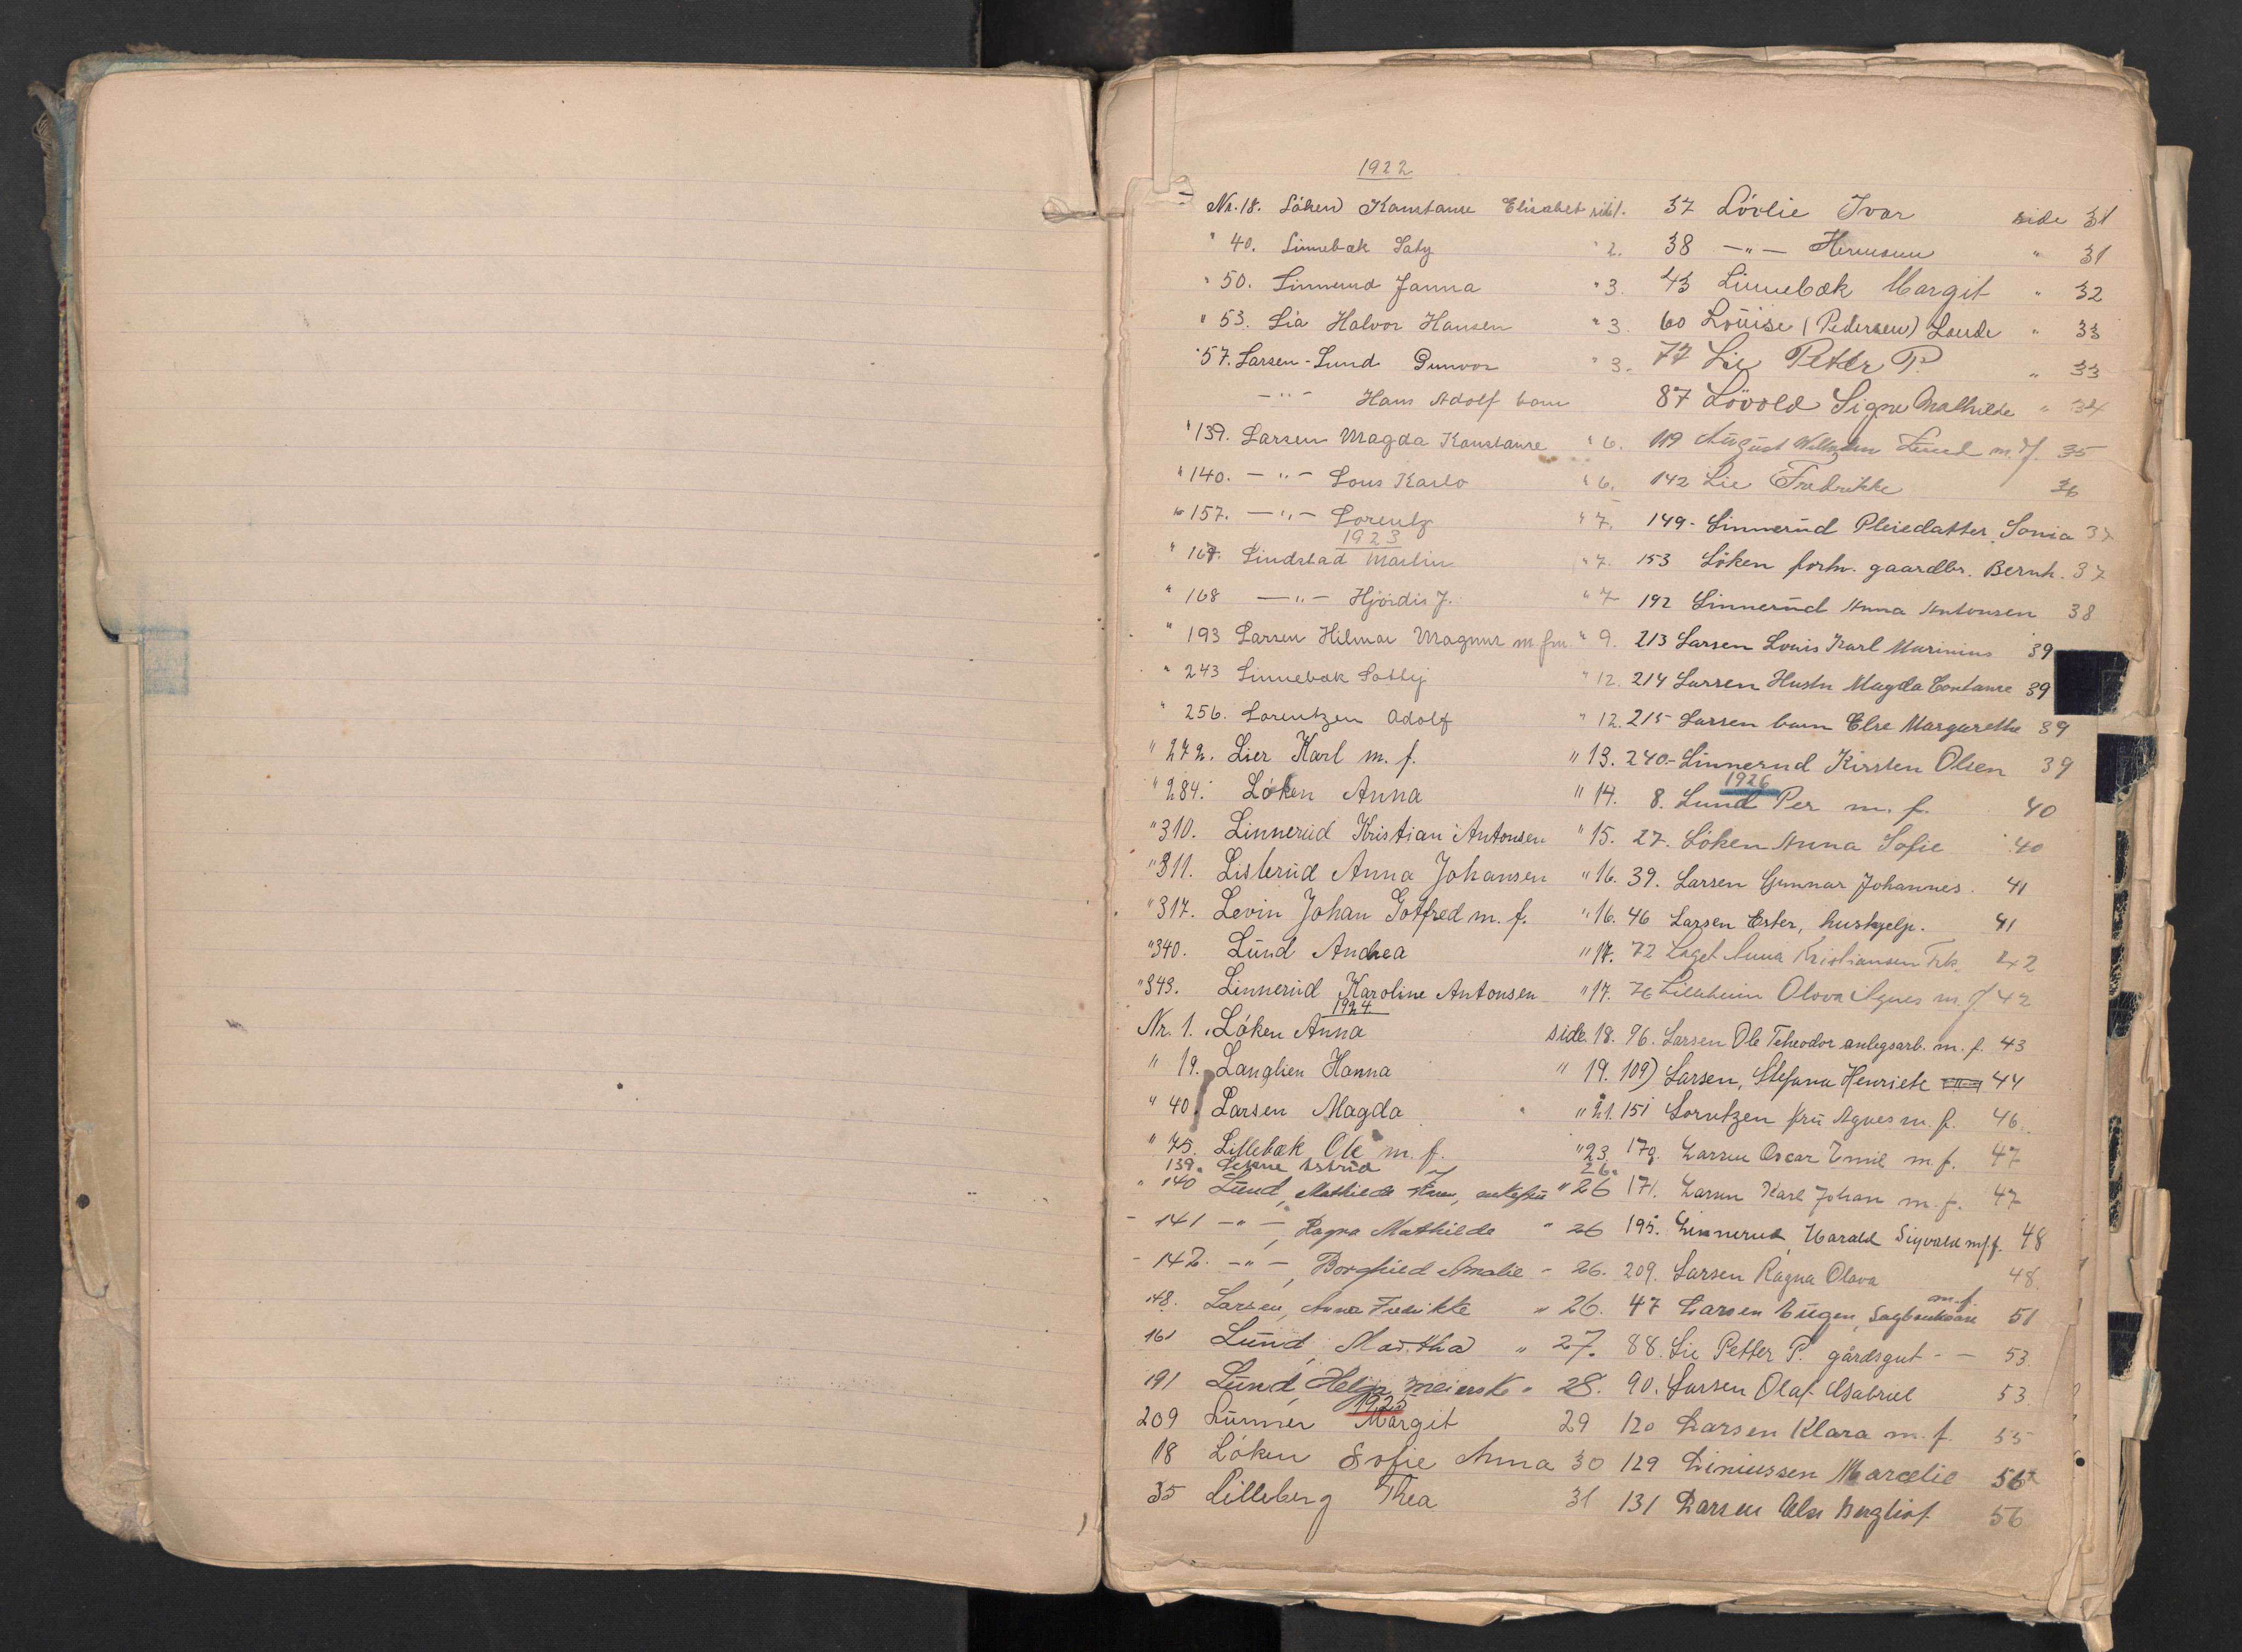 1922
Nr. 18. Löken Konstanse Elisabet side 1.
" 40. Linnebæk Saly " 2.
" 50. Linnerud Janna " 3.
" 53. Lia Halvor Hansen " 3.
" 57. Larsen-Lund Gunvor " 3.
— " — Hans Adolf barn
" 139. Larsen Magda Konstanse " 6.
" 140. — " — Louis Karlo " 6.
" 157. — " — Lorentz " 7.
1923
" 167. Lindstad Martin " 7.
" 168 — " — Hjördis J. " 7
" 193 Larsen Hilmar Magnus m. fm. " 9.
" 243 Linnebæk Solly " 12.
" 256. Lorentzen Adolf " 12.
" 272. Lier Karl m. f. " 13.
" 284. Löken Anna " 14.
" 310. Linnerud Kristian Antonsen " 15.
" 311. Listerud Anna Johansen " 16.
" 317. Levin Johan Gotfred m. f. " 16.
" 340. Lund Andrea " 17.
" 343. Linnerud Karoline Antonsen " 17.
1924
Nr. 1. Löken Anna side 18.
" 19. Langlien Hanna " 19.
" 40. Larsen Magda " 21.
" 75. Lillebæk Ole m. f. " 23.
139. Astrid 26.
" 140 Lund, Mathilde enkefru " 26
- 141 — " —, Ragna Mathilde " 26
- 142. — " —, Borghild Amalie - 26.
148. Larsen, Anna Fredrikke " 26.
161 Lund, Martha " 27.
191 Lund, Helga meierske " 28.
1925
209 Lunner Margit 29
18 Löken Sofie Anna 30
35 Lilleberg Thea 31
37 Lövlie Ivar side 31
38 — " — Hermann " 31
43 Linnebæk Margit " 32
60 Louise (Pedersen) Lunde " 33
77 Lie Petter P. " 33
87 Lövold Signe Mathilde " 34
119 August Wilhelm Lund m. f. 35
142 Lie Fredrikke 36
149 - Linnerud Pleiedatter, Sonia 37
153 Löken forhv. gaardbr. Bernh. 37
192 Linnerud Anna Antonsen 38
213 Larsen Louis Karl Marinius 39
214 Larsen Hustru Magda Contanse 39
215 Larsen barn Else Margarethe 39
240 - Linnerud Kirsten Olsen 39
1926
8. Lund Per m. f. 40
27. Löken Anna Sofie 40
39. Larsen Gunnar Johannes. 41
46 Larsen Ester, hushjelp. 41
72 Laget Anna Kristiansen Frk. 42
76 Lilleheim Olova Agnes m. f. 42
96. Larsen Ole Teheodor anlegsarb. m. f. 43
109) Larsen, Stefana Henriete 44
151 Lorntzen fru Agnes m. f. 46.
179. Larsen Oscar Emil m. f. 47
171. Larsen Karl Johan m. f. 47
195. Linnerud, Harald Sigvald m/f. 48
209. Larsen Ragna Olava 48.
47 Larsen Eugen, m. f. 51
88. Lie Petter P. gårdsgut - — 53.
90. Larsen Olaf Gabriel 53
120 Larsen Klara m. f. 55
129 Liniussen Marcelie 56
131 Larsen Else Bergliot 56